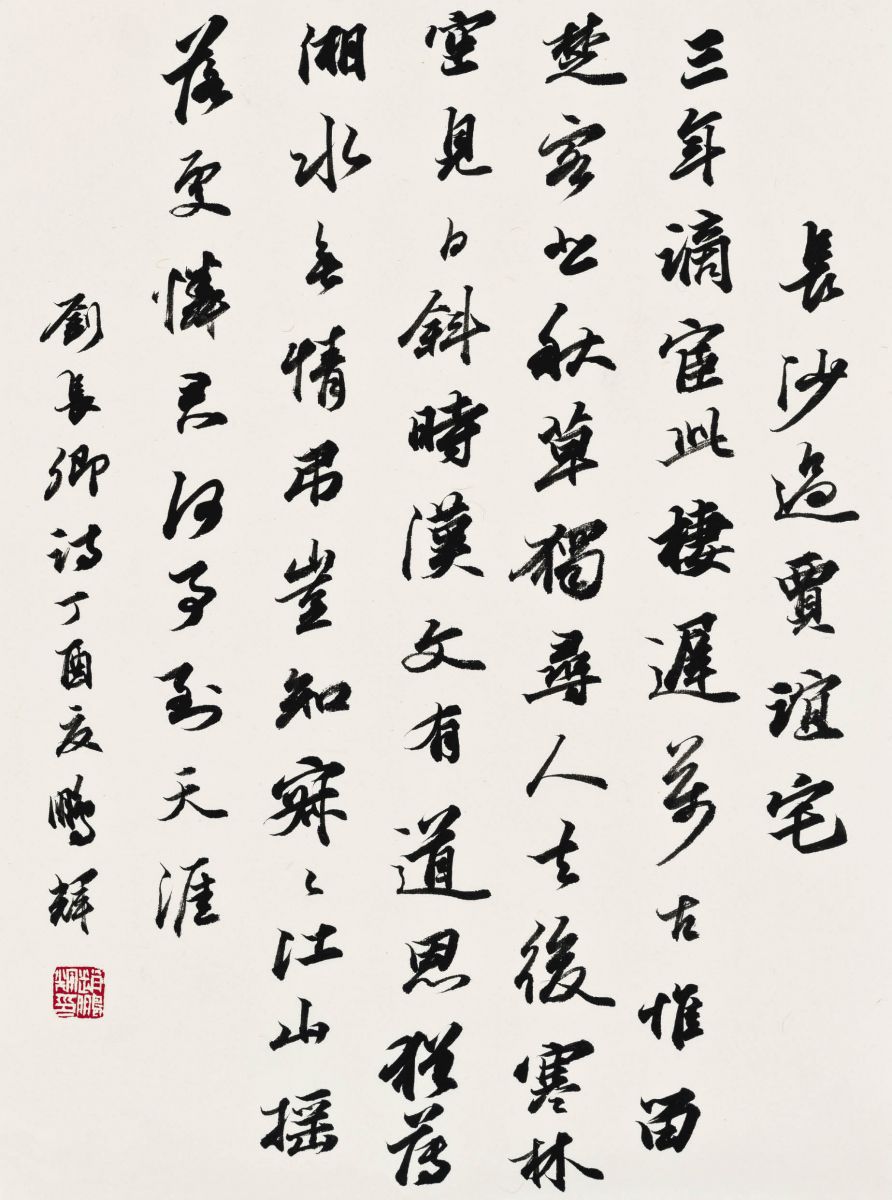 長沙過賈誼宅
三年謫宦此棲遲萬古惟留
楚客悲秋草獨尋人去後寒林
空見日斜時漢文有道恩猶薄
湘水無情弔豈知寂々江山搖
落更憐君何事到天涯
劉長卿詩丁酉夏鵬輝
趙鵬輝印